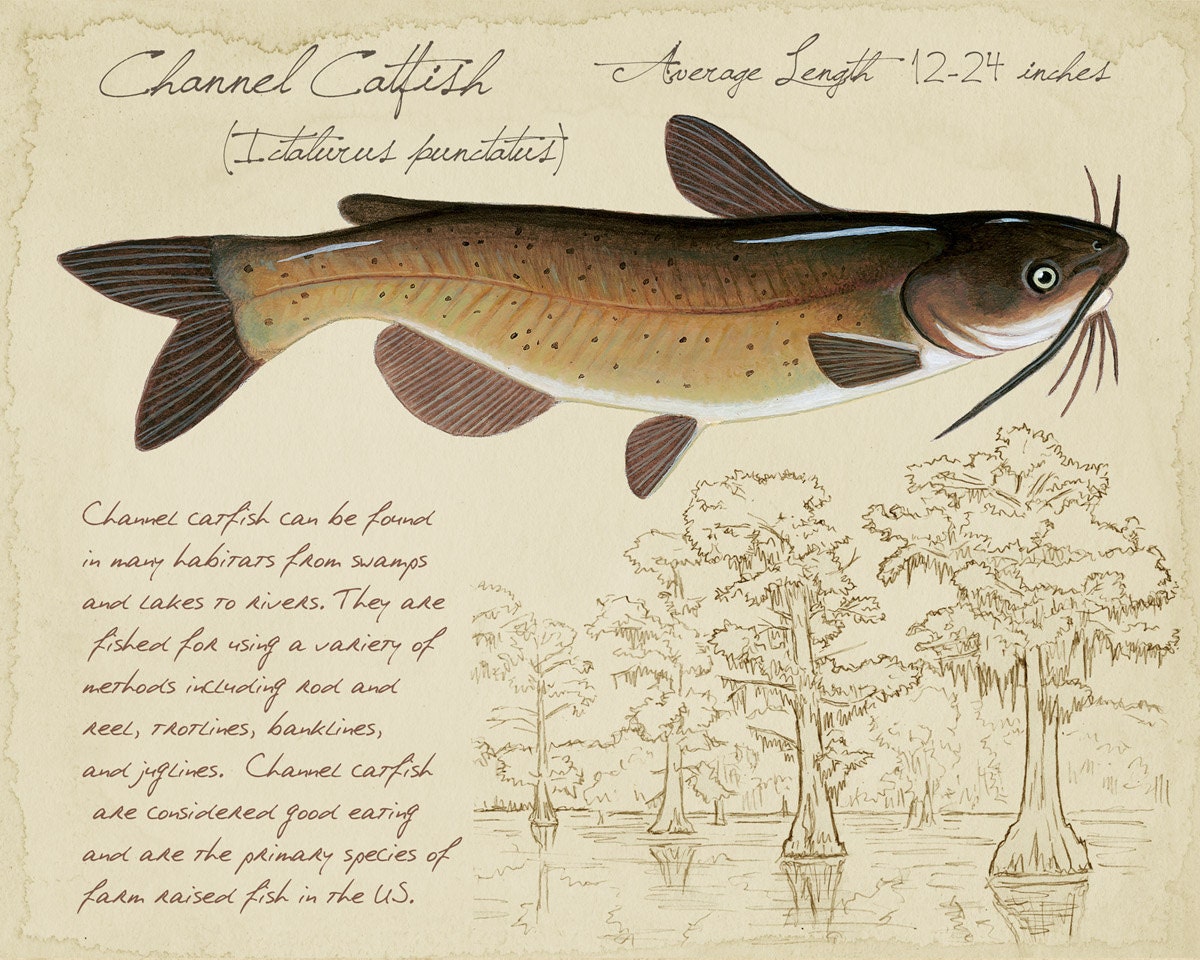 Channel Catfish
Average Length 12-24 inches
(Ictalurus punctatus)
Channel catfish can be found
in many habitats from swamps
and lakes to rivers. They are
fished for using a variety of
methods including rod and
reel, trotlines, banklines,
and juglines. Channel catfish
are considered good eating
and are the primary species of
farm raised fish in the US.